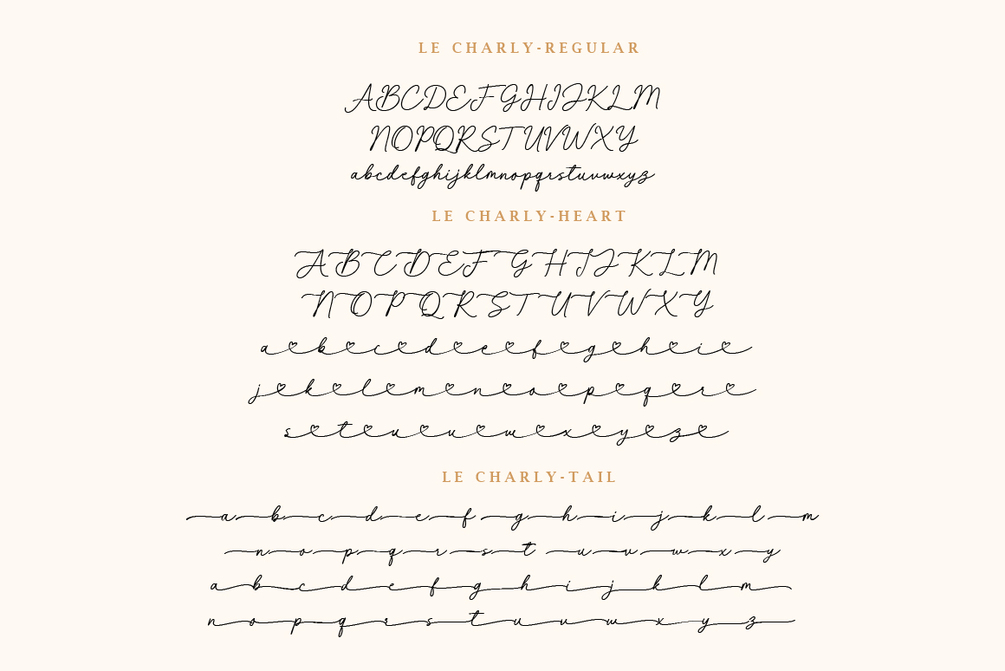 LE CHARLY-REGULAR
ABCDEFGHIJKLM
NOPQRSTUVWXY
abcdefghijklmnopqrstuvwxyz
LE CHARLY-HEART
ABCDEFGHIJKLM
NOPQRSTUVWXY
a b c d e f g h i
j k l m n o p q r
s t u v w x y z
LE CHARLY-TAIL
a b c d e f g h i j k l m
n o p q r s t u v w x y
a b c d e f g h i j k l m
n o p q r s t u v w x y z